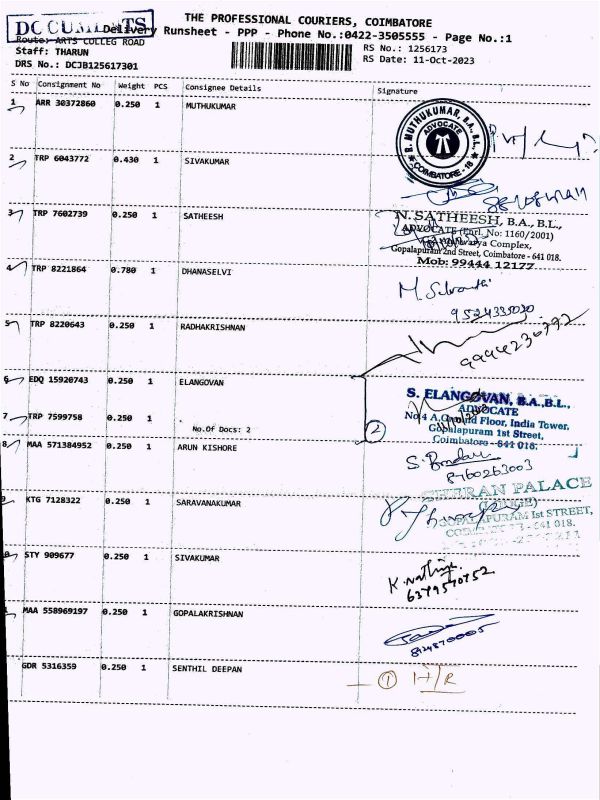 THE PROFESSIONAL COURIERS, COIMBATORE
DOCUMENTS
Delivery Runsheet - PPP - Phone No.:0422-3505555 - Page No.:1
Route: ARTS COLLEG ROAD
RS No.: 1256173
Staff: THARUN
RS Date: 11-Oct-2023
DRS No.: DCJB125617301
S No Consignment No Weight PCS Consignee Details Signature
1 ARR 30372860 0.250 1 MUTHUKUMAR
R. MUTHUKUMAR, B.A., B.L.,
ADVOCATE
COIMBATORE - 18
2 TRP 6043772 0.430 1 SIVAKUMAR
3 TRP 7602739 0.250 1 SATHEESH
N. SATHEESH, B.A., B.L.,
ADVOCATE (Enrl. No: 1160/2001)
Complex,
Gopalapuram 2nd Street, Coimbatore - 641 018.
Mob: 99444 12177
4 TRP 8221864 0.780 1 DHANASELVI
9524335020
5 TRP 8220643 0.250 1 RADHAKRISHNAN
9994230792
6 EDQ 15920743 0.250 1 ELANGOVAN
S. ELANGOVAN, B.A.,B.L.,
ADVOCATE
No 4 A, Ground Floor, India Tower,
Gopalapuram 1st Street,
Coimbatore - 641 018.
7 TRP 7599758 0.250 1
No.Of Docs: 2
2
8 MAA 571384952 0.250 1 ARUN KISHORE
8760263003
9 KTG 7128322 0.250 1 SARAVANAKUMAR
CHERAN PALACE
(LODGE)
GOPALAPURAM Ist STREET,
COIMBATORE - 641 018.
STY 909677 0.250 1 SIVAKUMAR
K. Nathiya
6379570752
MAA 558969197 0.250 1 GOPALAKRISHNAN
8124870005
GDR 5316359 0.250 1 SENTHIL DEEPAN
1 H/R